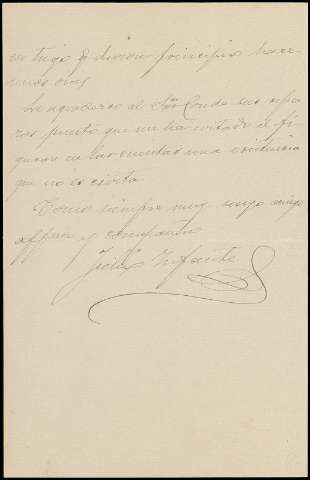 en trigo q dieron principio hace
unos dias
Le agradezco al Sor Conde sus repa
ros puesto que me ha evitado el fi
gurar en las cuentas una existencia
que no es cierta
Como siempre muy suyo amigo
affmo y compañero
Infante